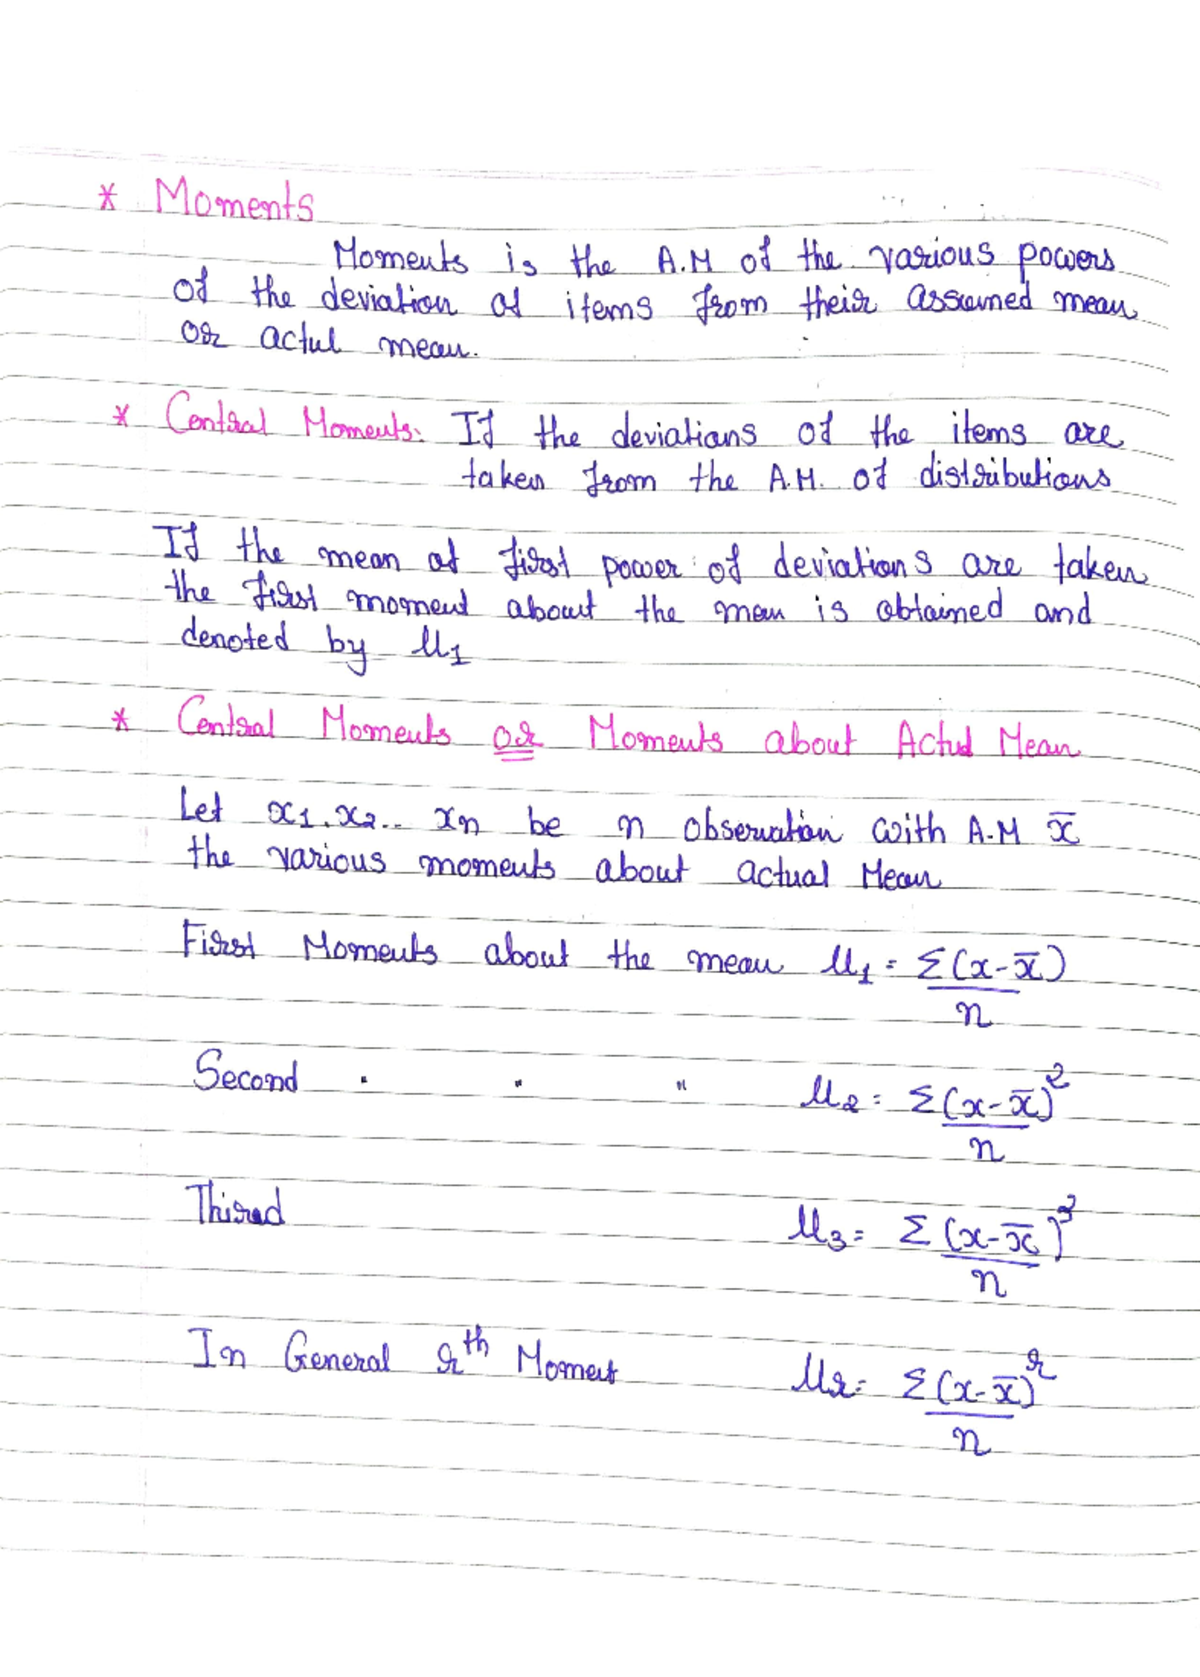 * Moments
Moments is the A.M of the various powers
of the deviation of items from their assumed mean
or actul mean.
* Central Moments: If the deviations of the items are
taken from the A.M. of distributions
If the mean of first power of deviations are taken
the first moment about the mean is obtained and
denoted by μ₁
* Central Moments or Moments about Actual Mean
Let x₁, x₂.. xn be n observation with A.M x̄
the various moments about actual Mean
First Moments about the mean μ₁ = Σ(x-x̄)
n
Second " " " μ₂ = Σ(x-x̄)²
n
Third μ₃ = Σ(x-x̄)³
n
In General rth Moment μr = Σ(x-x̄)^r
n